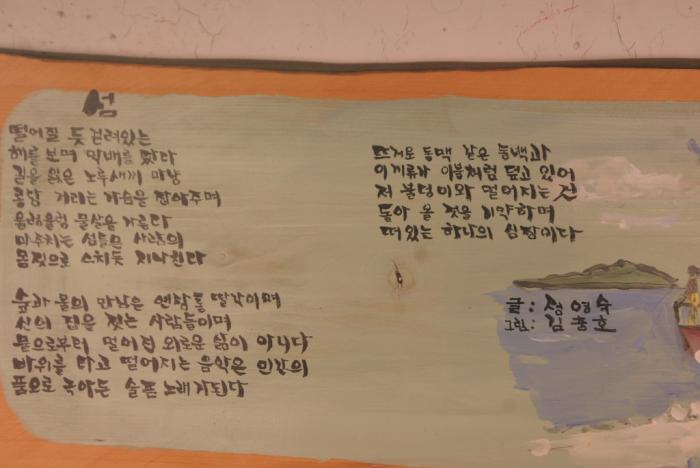 섬
떨어질 듯 걸려있는
해를 보며 막배를 탔다
길을 잃은 노루새끼 마냥
콩닥 거리는 가슴을 잡아주며
울렁울렁 물살을 가른다
마주치는 섬들은 사랑의
몸짓으로 스치듯 지나친다
숲과 물의 만남은 연장통 딸각이며
신의 집을 짓는 사람들이며
뭍으로부터 멀어진 외로운 삶이 아니다
바위를 타고 떨어지는 음악은 인간의
품으로 녹아든 슬픈 노래가된다
뜨거운 동맥 같은 동백과
이끼류가 이불처럼 덮고 있어
저 불덩이와 멀어지는 건
돌아 올 것을 기약하며
떠있는 하나의 쉼팡이다
글: 정영숙
그림: 김충호